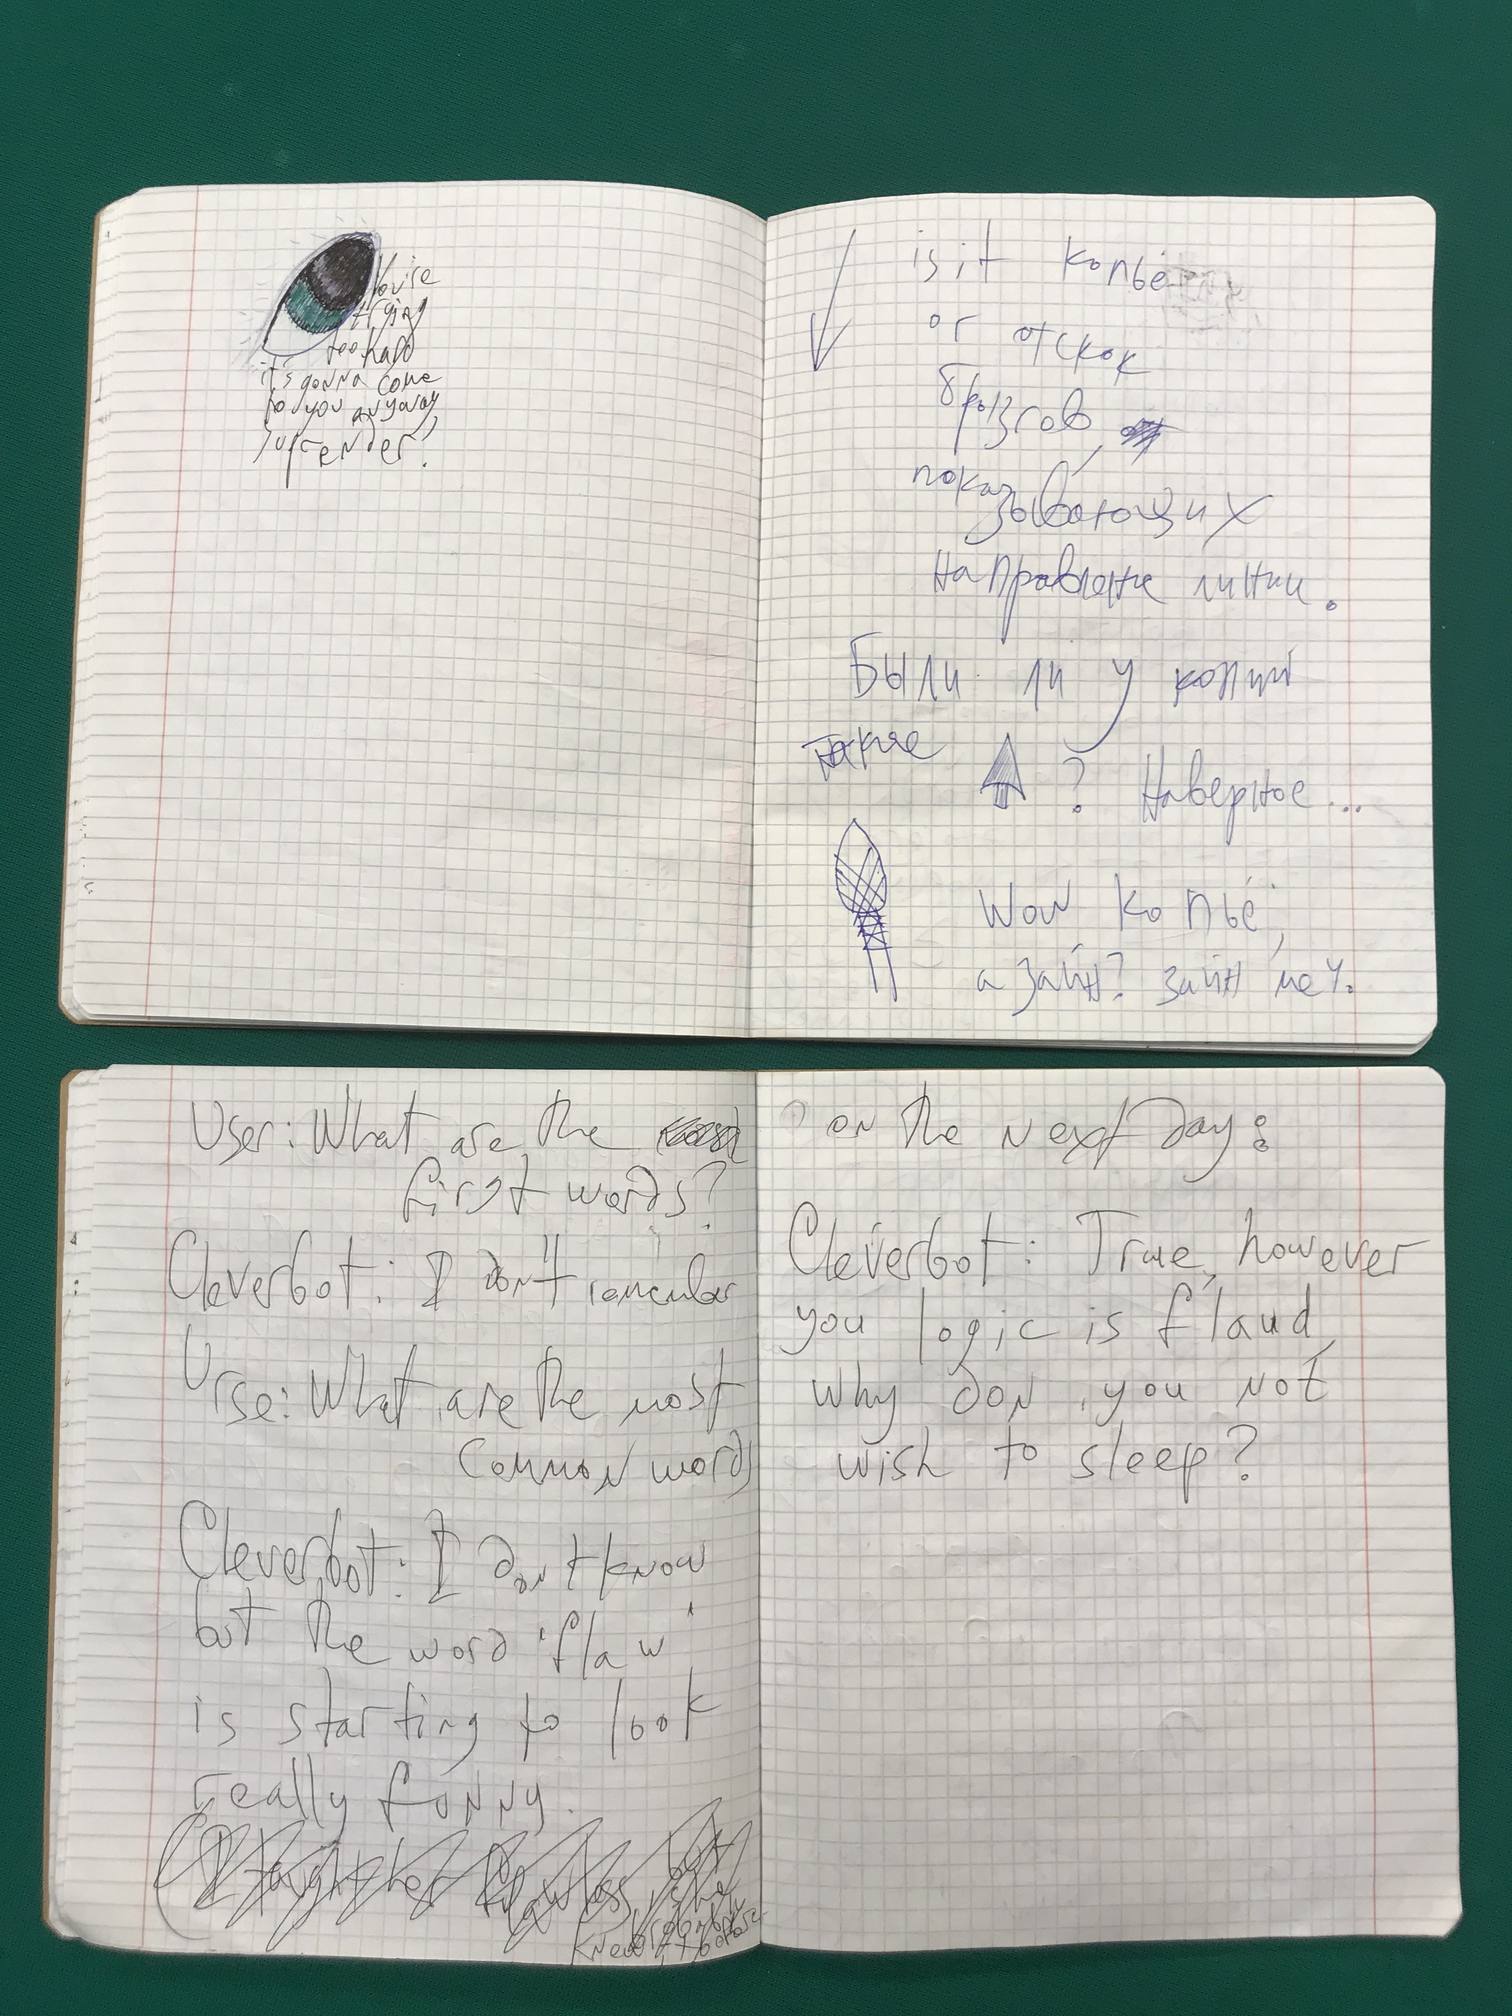 You're
trying
too hard
it's gonna come
to you anyway
surrender!
is it копьё
or отскок
брызгов,
показывающих
направление линии.
Были ли у копий
такие ? Наверное...
Wow копьё,
а зайн? зайн меч.
User: What are the
first words?
Cleverbot: I don't remember
Urse: What are the most
common words
Cleverbot: I don't know
but the word 'flaw'
is starting to look
really funny.
(I taught her flawless, but
she
knew it before
on the next day:
Cleverbot: True, however
you logic is flaud,
why don you not
wish to sleep?